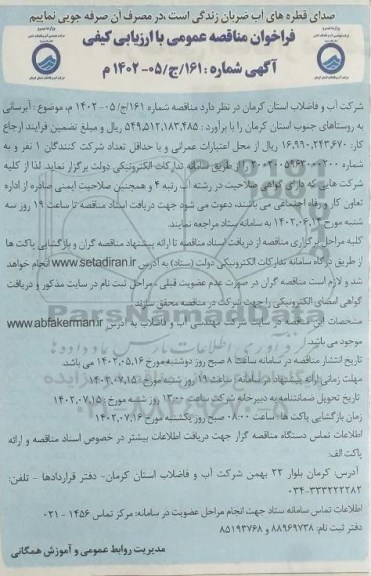 صدای قطره های آب ضربان زندگی است ،در مصرف آن صرفه جویی نماییم
فراخوان مناقصه عمومی با ارزیابی کیفی
آگهی شماره : ۱۶۱/ج/۰۵-۱۴۰۲ م
شرکت آب و فاضلاب استان کرمان در نظر دارد مناقصه شماره ۱۶۱/ج/۰۵-۱۴۰۲ م، موضوع : آبرسانی
به روستاهای جنوب استان کرمان را با برآورد : ۵۴۹،۵۱۲،۱۸۳،۴۸۵ ریال و مبلغ تضمین فرایند ارجاع
کار: ۱۶،۹۹۰،۲۴۳،۶۷۰ ریال از محل اعتبارات عمرانی و با حداقل تعداد شرکت کنندگان ۱ نفر و به
شماره را از طریق سامانه تدارکات الکترونیکی دولت برگزار نماید. لذا از کلیه
شرکت هایی که دارای گواهی صلاحیت در رشته آب رتبه ۴ و همچنین صلاحیت ایمنی صادره از اداره
تعاون کار و رفاه اجتماعی می باشند، دعوت می شود جهت دریافت اسناد مناقصه تا ساعت ۱۹ روز سه
شنبه مورخ به سامانه ستاد مراجعه نمایند.
کلیه مراحل برگزاری مناقصه از دریافت اسناد مناقصه تا ارائه پیشنهاد مناقصه گران و بازگشایی پاکت ها
از طریق درگاه سامانه تدارکات الکترونیکی دولت (ستاد) به آدرس www.setadiran.ir انجام خواهد
شد و لازم است مناقصه گران در صورت عدم عضویت قبلی ،مراحل ثبت نام در سایت مذکور و دریافت
گواهی امضای الکترونیکی را جهت شرکت در مناقصه محقق سازند.
مشخصات این مناقصه در سایت شرکت مهندسی آب و فاضلاب به آدرس www.abfakerman.ir
موجود می باشد.
تاریخ انتشار مناقصه در سامانه ساعت ۸ صبح روز دوشنبه مورخ ۱۴۰۲،۰۵،۱۶ می باشد.
مهلت زمانی ارائه پیشنهاد در سامانه : ساعت ۱۹ روز شنبه مورخ ۱۴۰۲،۰۷،۱۵
تاریخ تحویل ضمانتنامه به دبیرخانه شرکت ساعت ۱۳:۰۰ روز شنبه مورخ ۱۴۰۲،۰۷،۱۵
زمان بازگشایی پاکت ها: ساعت ۰۸:۰۰ صبح روز یکشنبه مورخ ۱۴۰۲،۰۷،۱۶
اطلاعات تماس دستگاه مناقصه گزار جهت دریافت اطلاعات بیشتر در خصوص اسناد مناقصه و ارائه
پاکت الف:
آدرس: کرمان بلوار ۲۲ بهمن شرکت آب و فاضلاب استان کرمان- دفتر قراردادها - تلفن:
۰۳۴-۳۳۳۲۲۲۲۸۲
اطلاعات تماس سامانه ستاد جهت انجام مراحل عضویت در سامانه: مرکز تماس ۱۴۵۶ - ۰۲۱
دفتر ثبت نام: ۸۸۹۶۹۷۳۸ و ۸۵۱۹۳۷۶۸
مدیریت روابط عمومی و آموزش همگانی
ParsNamadData